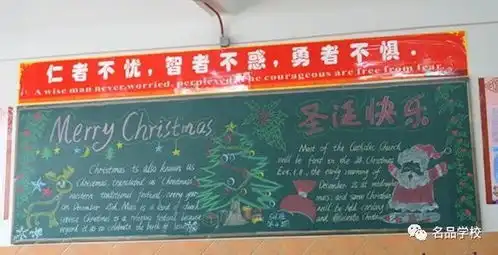 仁者不忧，智者不惑，勇者不惧.
A wise man never worried, perplexed, the courageous are free from fear.
Merry Christmas
圣诞快乐
Christmas is also known as
Christmas, translated as "Christmas"
western traditional festival, every year
on December 25th. Mass is a kind of
Christmas is a religious festival, because
regard it as to celebrate the birth of
Most of the Catholic Church
will be first in the 24 Christmas
Eve, i.e., the early morning of
December 25 at midnight
mass, and some Christian
will be held caroling
and celebrate Christmas
名品学校